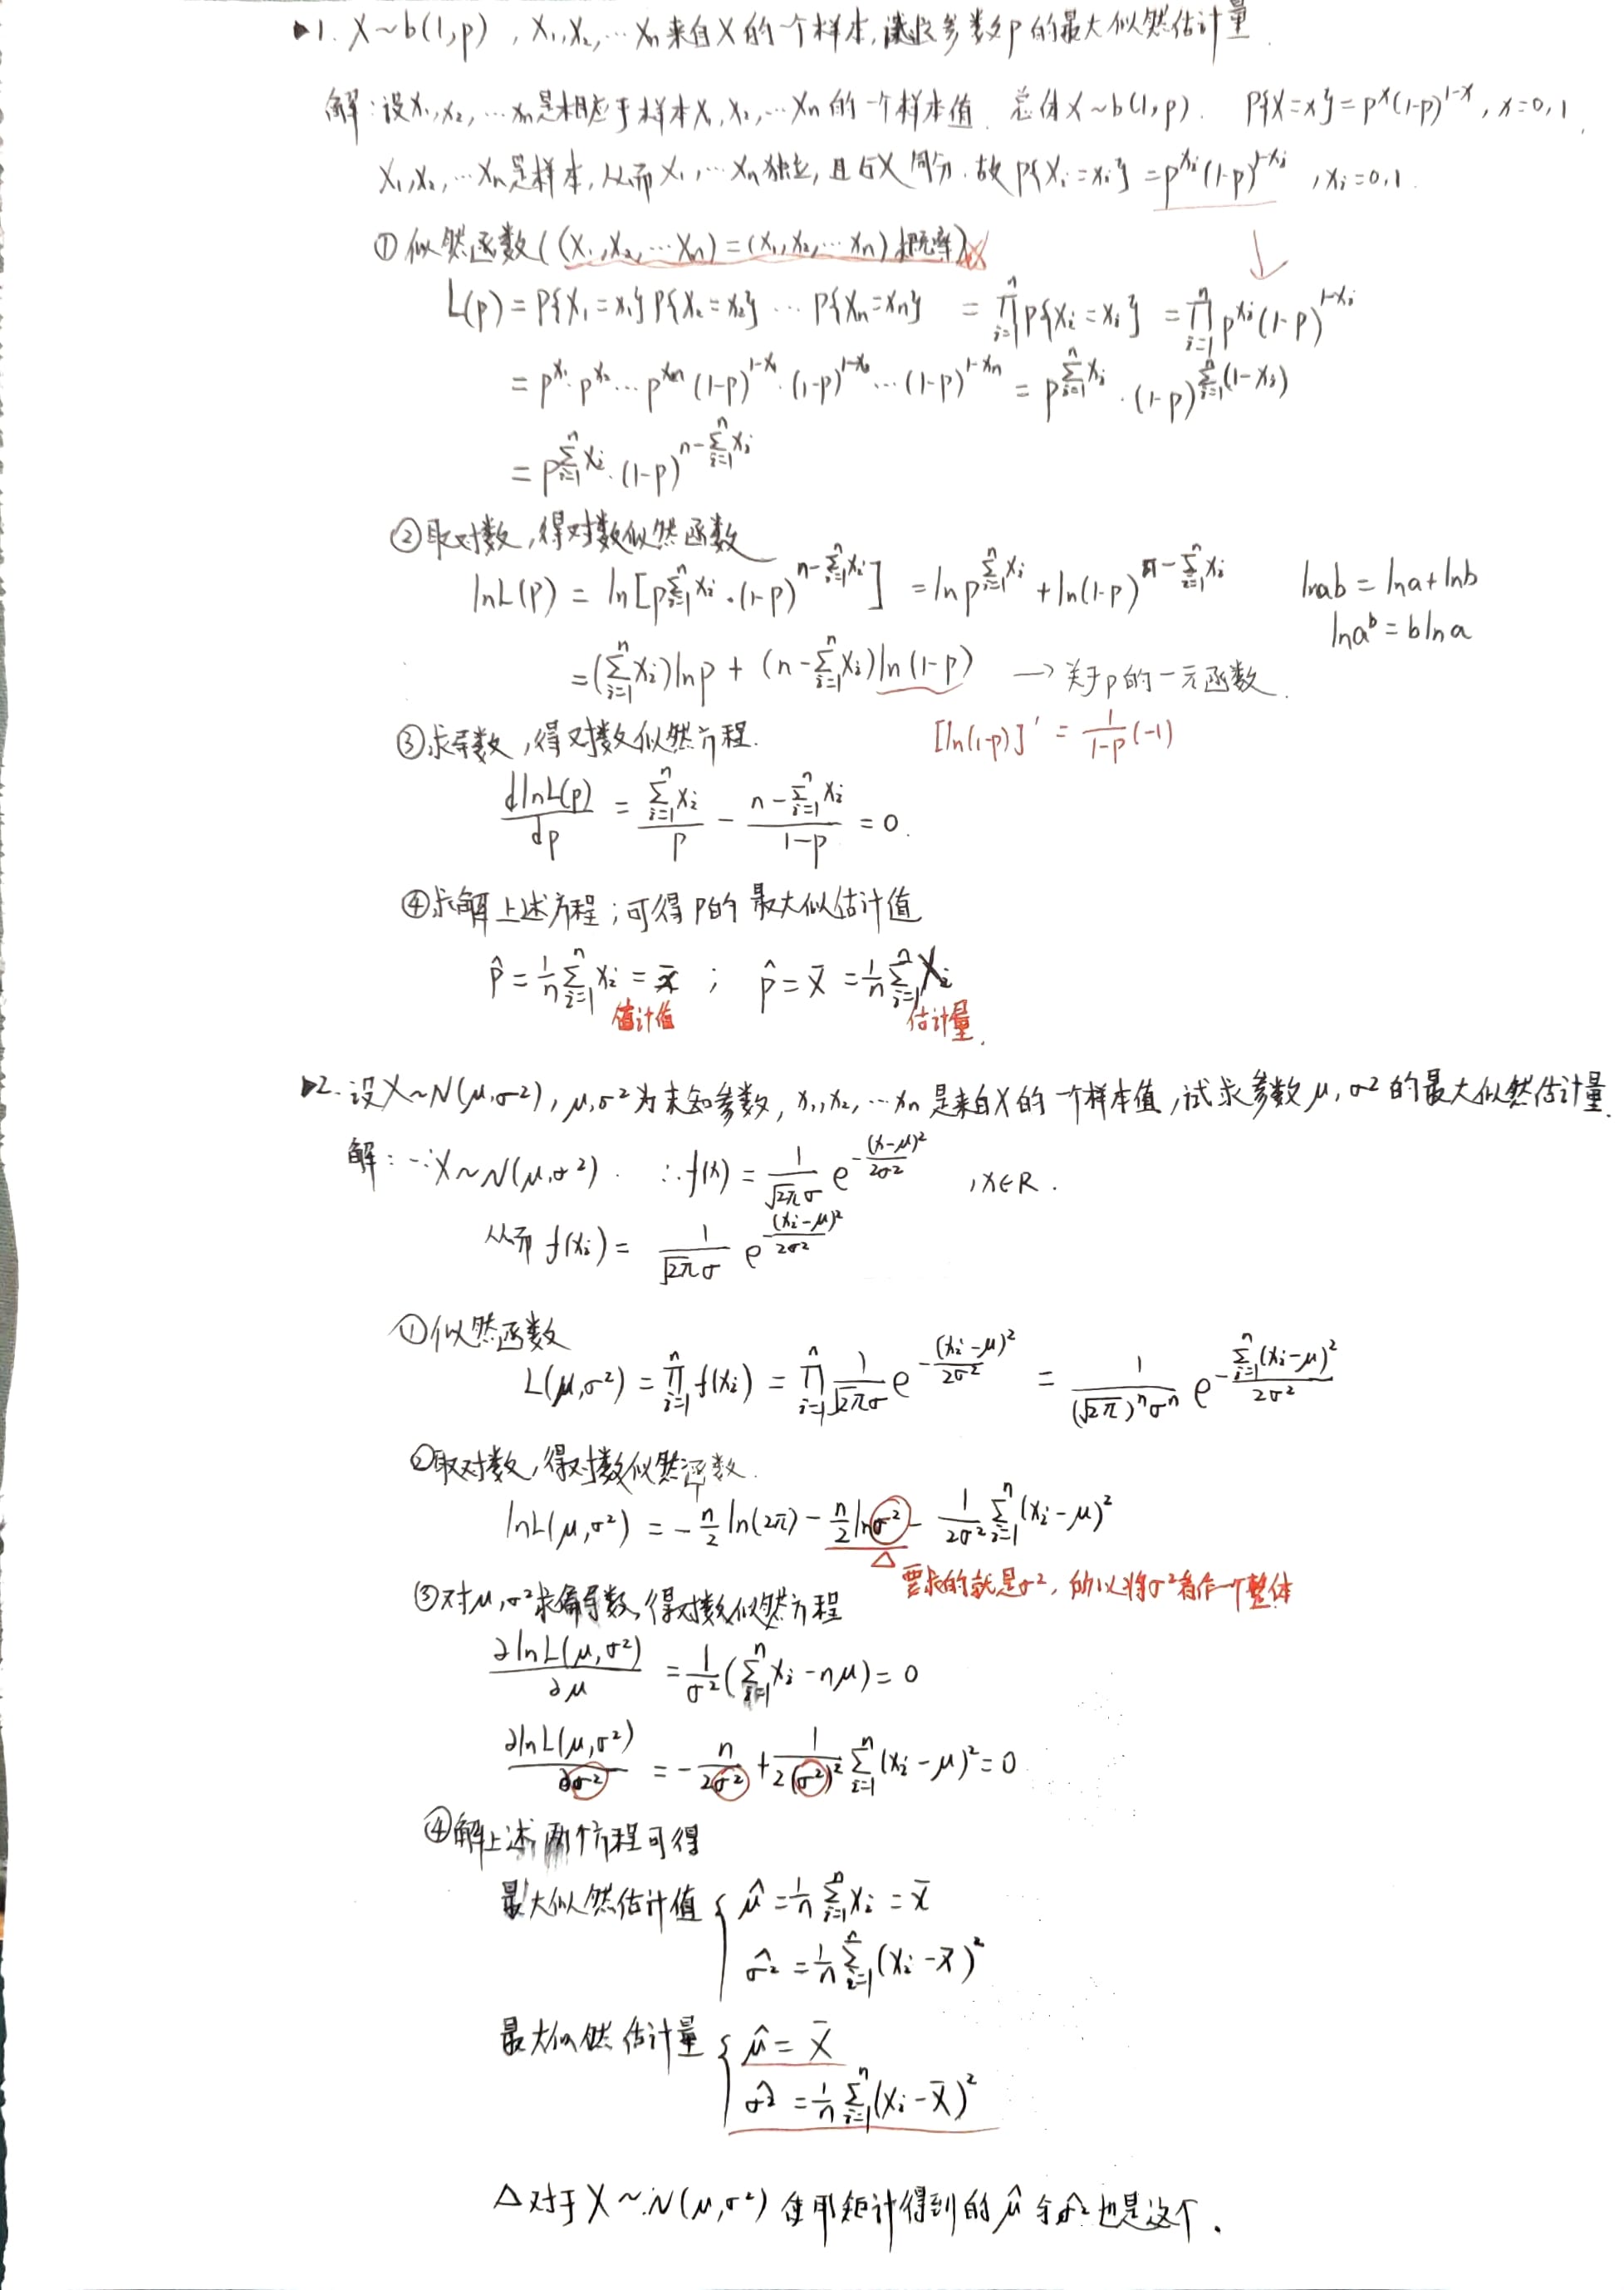 ▶1. X~b(1,p),X₁,X₂,…Xn来自X的一个样本,试求参数p的最大似然估计量.
解:设x₁,x₂,…xn是相应于样本X₁,X₂,…Xn的一个样本值. 总体X~b(1,p). P{X=x}=p^x(1-p)^{1-x}, x=0,1.
X₁,X₂,…Xn是样本,从而X₁,…Xn独立,且与X同分.故P{X_i=x_i}=p^{x_i}(1-p)^{1-x_i},x_i=0,1.
①似然函数((X₁,X₂,…Xn)=(x₁,x₂,…xn)概率)
L(p)=P{X₁=x₁}P{X₂=x₂}…P{Xn=xn} =∏_{i=1}^n P{X_i=x_i} =∏_{i=1}^n p^{x_i}(1-p)^{1-x_i}
=p^{x₁}·p^{x₂}…p^{xn}(1-p)^{1-x₁}·(1-p)^{1-x₂}…(1-p)^{1-xn}=p^{∑_{i=1}^n x_i}·(1-p)^{∑_{i=1}^n(1-x_i)}
=p^{∑_{i=1}^n x_i}·(1-p)^{n-∑_{i=1}^n x_i}
②取对数,得对数似然函数
lnL(p)=ln[p^{∑_{i=1}^n x_i}·(1-p)^{n-∑_{i=1}^n x_i}] =ln p^{∑_{i=1}^n x_i}+ln(1-p)^{n-∑_{i=1}^n x_i} lnab=lna+lnb
lna^b=blna
=(∑_{i=1}^n x_i)lnp+(n-∑_{i=1}^n x_i)ln(1-p) →关于p的一元函数.
③求导数,得对数似然方程. [ln(1-p)]'=\frac{1}{1-p}(-1)
\frac{dlnL(p)}{dp}=\frac{∑_{i=1}^n x_i}{p}-\frac{n-∑_{i=1}^n x_i}{1-p}=0.
④求解上述方程;可得p的最大似估计值
p̂=\frac{1}{n}∑_{i=1}^n x_i=x̄ ; p̂=X̄=\frac{1}{n}∑_{i=1}^n X_i
值计值 估计量.
▶2.设X~N(μ,σ²),μ,σ²为未知参数,x₁,x₂,…xn是来自X的一个样本值,试求参数μ,σ²的最大似然估计量.
解:∵X~N(μ,σ²). ∴f(x)=\frac{1}{\sqrt{2π}σ}e^{-\frac{(x-μ)²}{2σ²}} ,x∈R.
从而f(x_i)=\frac{1}{\sqrt{2π}σ}e^{-\frac{(x_i-μ)²}{2σ²}}
①似然函数
L(μ,σ²)=∏_{i=1}^n f(x_i)=∏_{i=1}^n\frac{1}{\sqrt{2π}σ}e^{-\frac{(x_i-μ)²}{2σ²}}=\frac{1}{(\sqrt{2π})^nσ^n}e^{-\frac{∑_{i=1}^n(x_i-μ)²}{2σ²}}
②取对数,得对数似然函数.
lnL(μ,σ²)=-\frac{n}{2}ln(2π)-\frac{n}{2}lnσ²-\frac{1}{2σ²}∑_{i=1}^n(x_i-μ)²
△要求的就是σ²,所以将σ²看作一个整体
③对μ,σ²求偏导数,得对数似然方程
\frac{∂lnL(μ,σ²)}{∂μ}=\frac{1}{σ²}(∑_{i=1}^n x_i-nμ)=0
\frac{∂lnL(μ,σ²)}{∂σ²}=-\frac{n}{2σ²}+\frac{1}{2(σ²)²}∑_{i=1}^n(x_i-μ)²=0
④解上述两个方程可得
最大似然估计值{μ̂=\frac{1}{n}∑_{i=1}^n x_i=x̄
σ̂²=\frac{1}{n}∑_{i=1}^n(x_i-x̄)²
最大似然估计量{μ̂=X̄
σ̂²=\frac{1}{n}∑_{i=1}^n(X_i-X̄)²
△对于X~N(μ,σ²)使用矩计得到的μ̂与σ̂²也是这个.